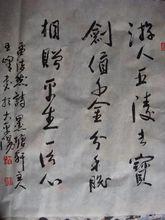 游人五陵去寶
劍值千金分手脱
相贈平生一片心
孟浩然詩